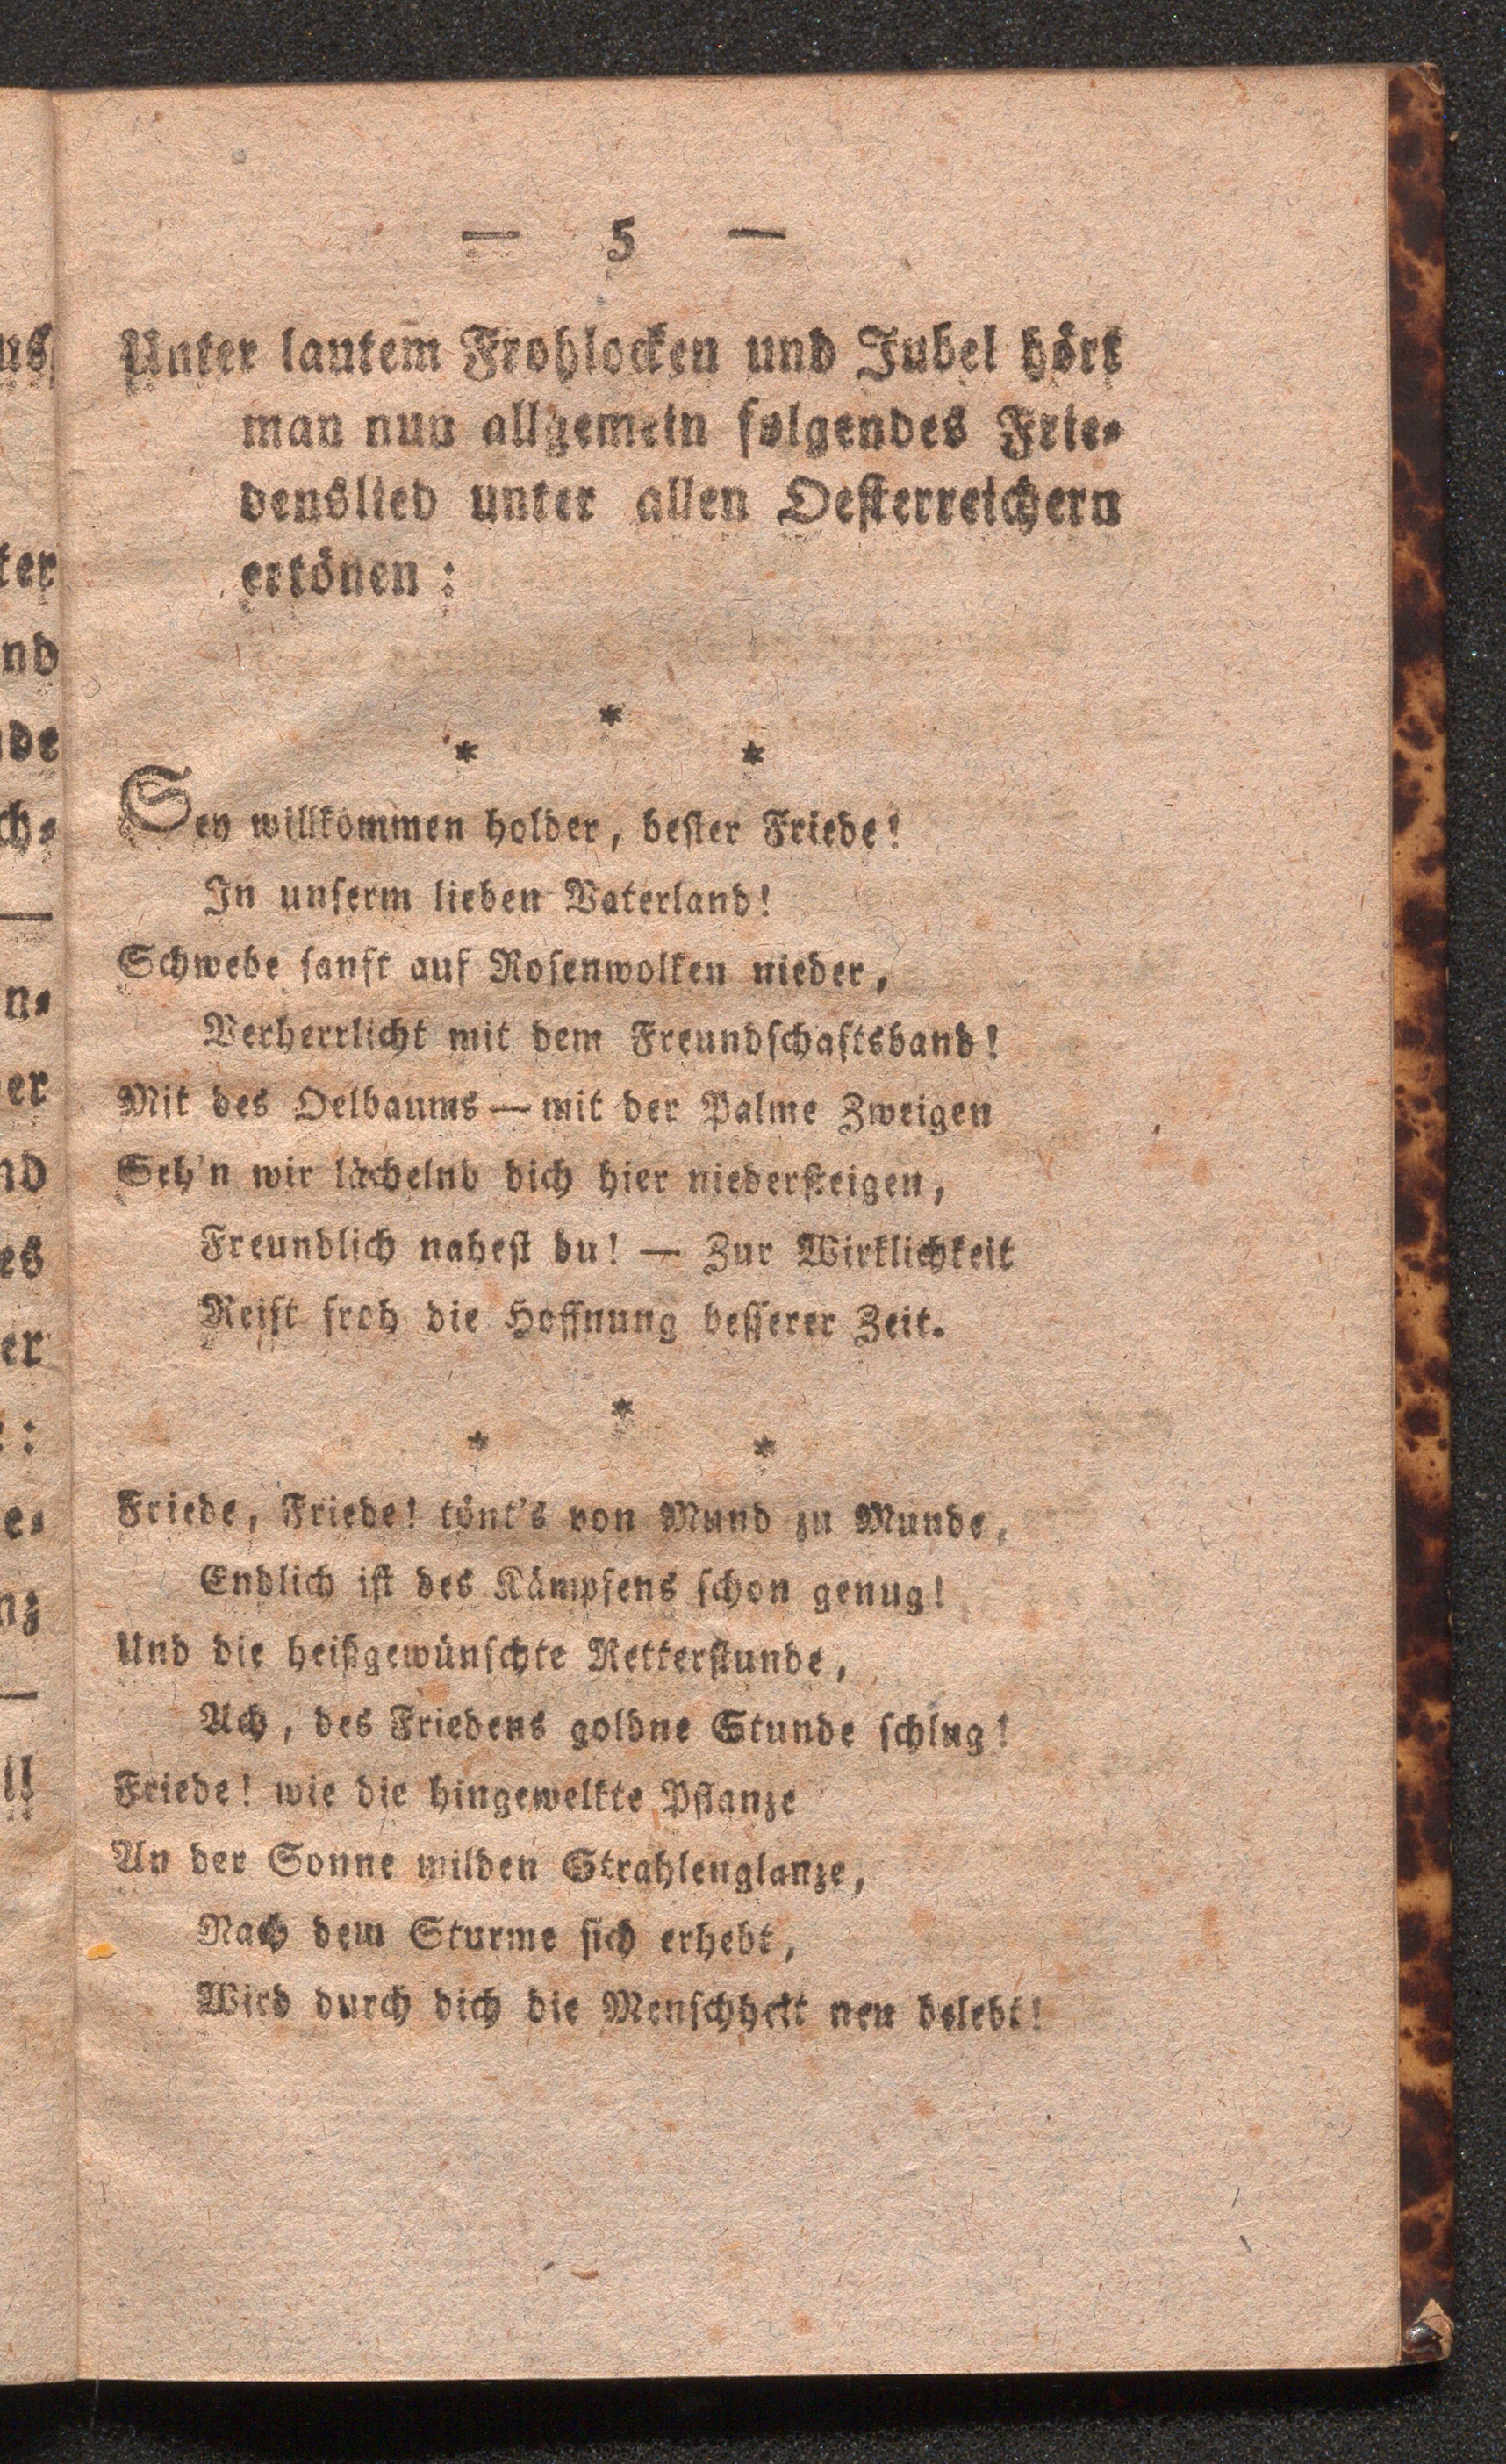 — 5 —
Unter lautem Frohlocken und Jubel hört
man nun allgemein folgendes Frie-
denslied unter allen Oesterreichern
ertönen:
*
* *
Sey willkommen holder, bester Friede!
In unserm lieben Vaterland!
Schwebe sanft auf Rosenwolken nieder,
Verherrlicht mit dem Freundschaftsband!
Mit des Oelbaums — mit der Palme Zweigen
Seh'n wir lächelnd dich hier niedersteigen,
Freundlich nahest du! — Zur Wirklichkeit
Reift froh die Hoffnung besserer Zeit.
*
* *
Friede, Friede! tönt's von Mund zu Munde,
Endlich ist des Kämpfens schon genug!
Und die heißgewünschte Retterstunde,
Ach, des Friedens goldne Stunde schlug!
Friede! wie die hingewelkte Pflanze
An der Sonne milden Strahlenglanze,
Nach dem Sturme sich erhebt,
Wird durch dich die Menschheit neu belebt!